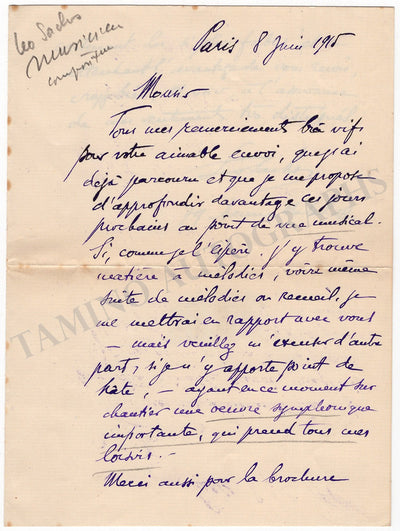 Leo Sachs
musicien
compositeur
Paris 8 Juin 1915
Monsieur
Tous mes remerciements bien vifs
pour votre aimable envoi, que j'ai
déjà parcouru et que je me propose
d'approfondir davantage ces jours
prochains au point de vue musical.
Si, comme je l'espère, j'y trouve
matière à mélodies, voire même
suite de mélodies ou recueil, je
me mettrai en rapport avec vous
— mais veuillez m'excuser d'autre
part, si je n'y apporte point de
hâte, — ayant en ce moment sur
chantier une oeuvre symphonique
importante, qui prend tous mes
loisirs. —
Merci aussi pour la brochure
TAMINO AUTOGRAPHS